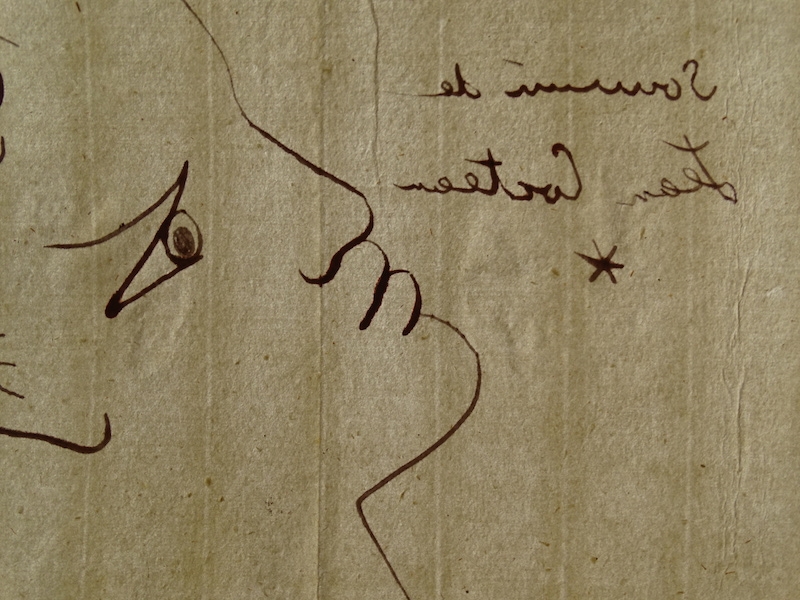 Souvenir de
Jean Cocteau